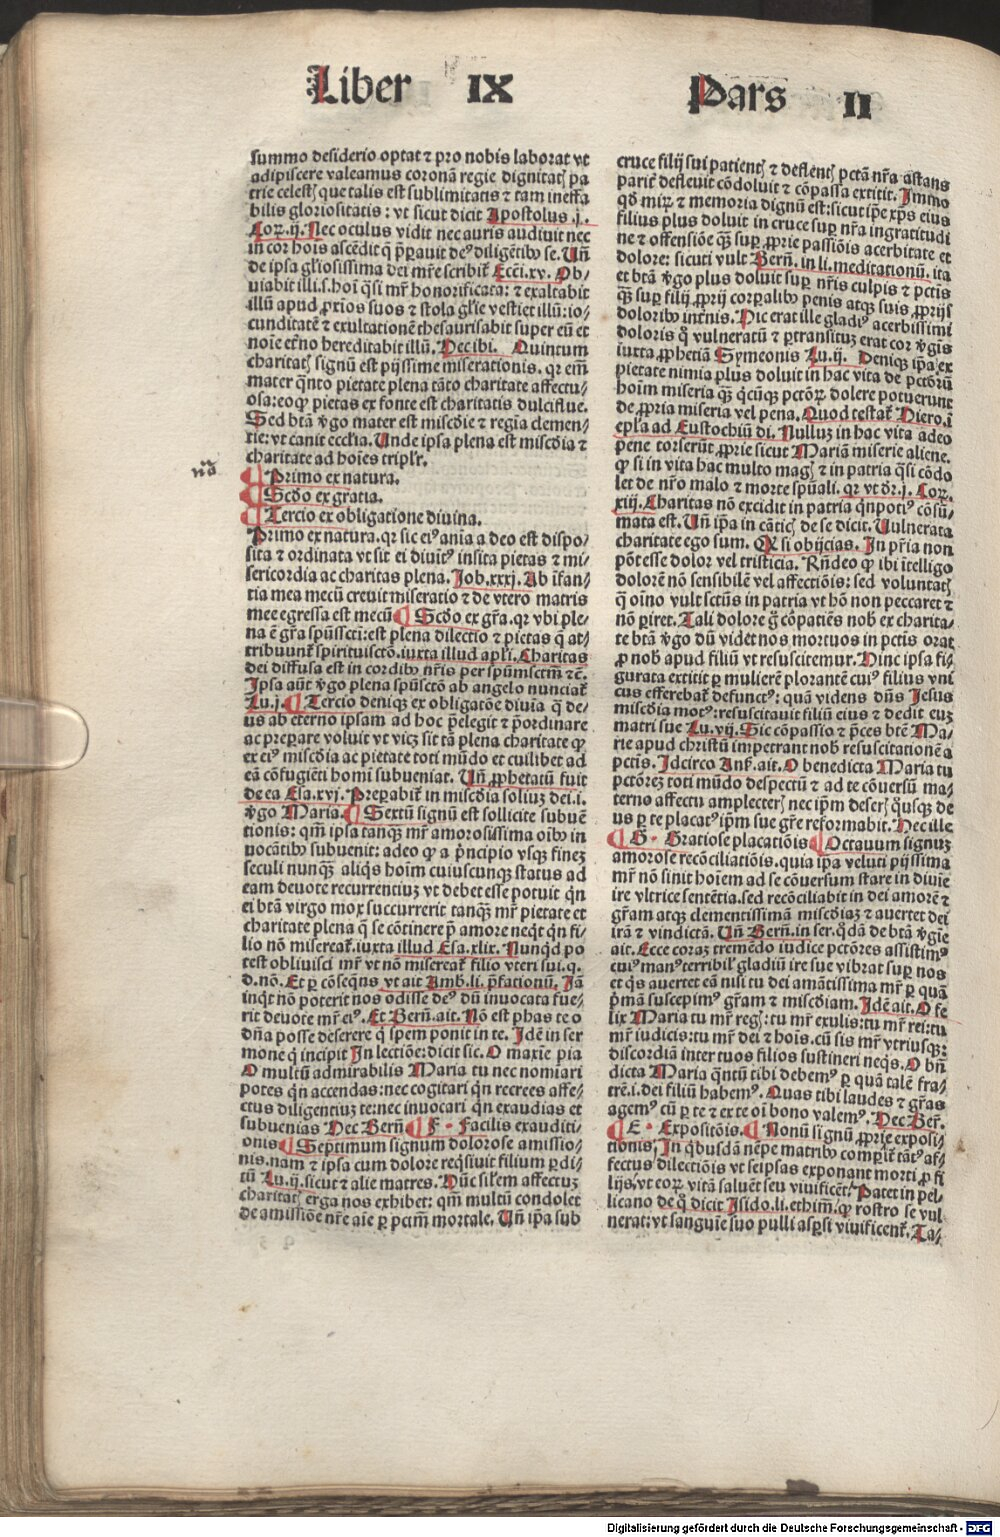 Liber IX Pars II
summo desiderio optat ⁊ pro nobis laborat vt
adipiscere valeamus coronā regie dignitatꝭ pa
trie celestꝭ que talis est sublimitatis ⁊ tam ineffa
bilis gloriositatis: vt sicut dicit Apostolus .j.
Coꝝ.ij. Nec oculus vidit nec auris audiuit nec
in cor hoīs ascēdit q̄ p̄parauit deꝰ diligētibꝰ se. Vn̄
de ipsa gl'iosissima dei mr̄e scribit̄ Ecci.xv. Ob/
uiabit illi.s.hoī q̄si mr̄ honorificata: ⁊ exaltabit
illū apud ꝓxīos suos ⁊ stola gl'ie vestiet illū: io/
cunditatē ⁊ exultationē thesaurisabit super eū et
noīe et̄no hereditabit illū. Hec ibi. Quintum
charitatꝭ signū est pijssime miserationis. qr em̄
mater q̄nto pietate plena tāto charitate affectu/
osa: eo ꝙ pietas ex fonte est charitatis dulciflue.
Sed btā v̄go mater est miscd'ie ⁊ regia clemen/
tie: vt canit eccl'ia. Unde ipsa plena est miscd'ia ⁊
charitate ad hoīes tripl'r.
nō
¶ Primo ex natura.
¶ Scd'o ex gratia.
¶ Tercio ex obligatione diuina.
Primo ex natura. qr sic eiꝰ anīa a deo est dispo/
sita ⁊ ordinata vt sit ei diuīꝰ insita pietas ⁊ mi/
sericordia ac charitas plena. Job.xxxj. Ab īfan/
tia mea mecū creuit miseratio ⁊ de vtero matris
mee egressa est mecū ¶ Scd'o ex gr̄a. qr vbi ple/
na ē gr̄a sp̄ussct̄i: est plena dilectio ⁊ pietas q̄ at/
tribuunt̄ spirituisctō. iuxta illud apl'i. Charitas
dei diffusa est in cordibꝰ nr̄is per sp̄umsctm̄ ⁊c̄.
Ipsa aūt v̄go plena sp̄usctō ab angelo nunciat̄
Lu.j. ¶ Tercio denique ex obligatōe diuīa q̄ de/
us ab eterno ipsam ad hoc p̄elegit ⁊ p̄ordinare
ac preparare voluit vt vicꝫ sit tā plena charitate ꝙ
ex eiꝰ miscd'ia ac pietate toti mūdo et cuilibet ad
eā cōfugiēti homī subueniat. Un̄ ꝓphetatū fuit
de ea Esa.xvj. Preparabit̄ in miscd'ia soliuꝫ dei.i.
v̄go Maria. ¶ Sextū signū est sollicite subuē
tionis: qm̄ ipsa tanq̄ꝫ mr̄ amorosissima oībꝰ in
uocātibꝰ subuenit: adeo ꝙ a p̄ncipio vsqꝫ fineꝫ
seculi nunq̄ꝫ aliq̄s hoīm cuiuscunqꝫ status ad
eam deuote recurrentiuꝫ vt debet esse potuit q̄n
ei btā virgo mox succurrerit tanq̄ꝫ mr̄ pietate et
charitate plena q̄ se cōtinere p̄ amore neqt q̄n fi/
lio nō misereat̄. iuxta illud Esa.xlix. Nunqd po
test obliuisci mr̄ vt nō misereat̄ filio vteri sui.q.
d.nō. Et ꝑ cōseqn̄s vt ait Amb.li. p̄fationū. Jā
inqt nō poterit nos odisse deꝰ dū inuocata fue/
rit deuote mr̄ eiꝰ. Et Bern̄.ait. Nō est phas te o
dn̄a posse deserere q̄ spem ponit in te. Idē in ser
mone q̄ incipit In lectiōe: dicit sic. O maxīe pia
O multū admirabilis Maria tu nec nomiari
potes q̄n accendas: nec cogitari q̄n recrees affe/
ctus diligentiuꝫ te: nec inuocari q̄n exaudias et
subuenias Hec Bern̄ ¶ F · Facilis exauditi/
onis ¶ Septimum signum dolorose amissio/
nis. nam ⁊ ipsa cum dolore reqsiuit filium ꝑdi/
tū Lu.ij. sicut ⁊ alie matres. Hūc sil'em affectuꝫ
charitatꝭ erga nos exhibet: qm̄ multū condolet
de amissiōe nr̄e aīe ꝑ pctm̄ mortale. Un̄ ip̄a sub
cruce filij sui patientꝭ ⁊ deflentꝭ pctā nr̄a astans
parit̄ defleuit cōdoluit ⁊ cōpassa extitit. Immo
qd̄ miꝝ ⁊ memoria dignū est: sicut ip̄e xp̄s eius
filius plus doluit in cruce suꝑ nr̄a ingratitudi
ne ⁊ offensiōe q̄ꝫ suꝑ ꝓprie passiōis acerbitate et
dolore: sicuti vult Bern̄. in li. meditationū. ita
et btā v̄go plus doluit suꝑ nr̄is culpis ⁊ pctīs
q̄ꝫ suꝑ filij ꝓprij corꝑalibꝰ penis atqꝫ suis ꝓprijs
doloribꝰ int̄nis. Hic erat ille gladiꝰ acerbissimi
doloris q̄ vulneratū ⁊ ꝑtransituꝫ erat cor v̄gīs
iuxta ꝓphetiā Symeonis Lu.ij. Denique ip̄a ex
pietate nimia plus doluit in hac vita de pctōrū
hoīm miseria q̄ꝫ q̄cūqꝫ pctōꝝ dolere potuerunt
de ꝓpria miseria vel pena. Quod testat̄ Hiero.ī
epl'a ad Eustochiū di. Nulluꝫ in hac vita adeo
pene torserūt ꝓprie sicut Mariā miserie aliene.
ꝙ si in vita hac multo magꝭ ⁊ in patria q̄si cōdo
let de nr̄o malo ⁊ morte sp̄uali. qr vt dr̄.j. Coꝝ.
xiij. Charitas nō excidit in patria q̄npotiꝰ cōsū/
mata est. Un̄ ip̄a in cāticꝯ de se dicit. Vulnerata
charitate ego sum. Q̄ si obijcias. In pr̄ia non
pōt esse dolor vel tristicia. Rn̄deo ꝙ ibi ītelligo
dolorē nō sensibilē vel affectiōis: sed voluntatꝭ
q̄ oīno vult sct̄us in patria vt hō non peccaret ⁊
nō ꝑiret. Tali dolore ḡ cōpatiēs nob̄ ex charita/
te btā v̄go dū videt nos mortuos in pctīs orat
ꝓ nob̄ apud filiū vt resuscitemur. Hinc ipsa fi/
gurata extitit ꝑ mulierē plorantē cuiꝰ filius vni
cus efferebat̄ defunctꝰ: quā videns dn̄s Jesus
miscd'ia motꝰ: resuscitauit filiū eius ⁊ dedit euꝫ
matri sue Lu.vij. Sic cōpassio ⁊ p̄ces btē Ma/
rie apud christū impetrant nob̄ resuscitationē a
pctīs. Idcirco Ans̄.ait. O benedicta Maria tu
pctōreꝫ toti mūdo despectū ⁊ ad te cōuersū ma/
terno affectu amplecterꝭ nec ip̄m deserꝭ q̄usqꝫ de
us ꝑ te placatꝰ ip̄m sue gr̄e reformabit. Hec ille
¶ G · Gratiose placatiōis ¶ Octauum signuꝫ
amorose recōciliatiōis. quia ip̄a veluti pijssima
mr̄ nō sinit hoīem ad se cōuersum stare in diuīe
ire vltrice sentētia. sed recōciliabit in dei amorē ⁊
gr̄am atqꝫ clementissimā miscd'iaꝫ ⁊ auertet dei
irā ⁊ vindictā. Un̄ Bern̄. in ser. q̄dā de btā v̄gīe
ait. Ecce coraꝫ tremēdo iudice pctōres assistimꝰ
cuiꝰ manꝰ terribil' gladiū ire sue vibrat suꝑ nos
et q̄s auertet eā nisi tu dei amātissima mr̄ ꝑ quā
p̄mā suscepimꝰ gr̄am ⁊ miscd'iam. Idē ait. O fe
lix Maria tu mr̄ regꝭ: tu mr̄ exulis: tu mr̄ rei: tu
mr̄ iudicis: tu mr̄ dei ⁊ hoīs. cū sis mr̄ vtriusqꝫ:
discordiā inter tuos filios sustineri neq̄s. O bn̄
dicta Maria q̄ntū tibi debemꝰ ꝑ quā talē fra/
trē.i. dei filiū habemꝰ. Quas tibi laudes ⁊ gr̄as
agemꝰ cū ꝑ te ⁊ ex te oī bono valemꝰ. Hec Ber̄.
¶ E · Expositōis. ¶ Nonū signū ꝓprie exposi/
tionis. In q̄busdā nēpe matribꝰ comꝑit̄ tātꝰ af/
fectus dilectiōis vt seipsas exponant morti ꝓ fi
lijs, vt eoꝝ vitā saluēt seu viuificēt. Patet in pel/
licano de q̄ dicit Isido.li.ethim. ꝙ rostro se vul
nerat: vt sanguīe suo pulli asꝑsi viuificent̄. Ta/
Digitalisierung gefördert durch die Deutsche Forschungsgemeinschaft - DFG